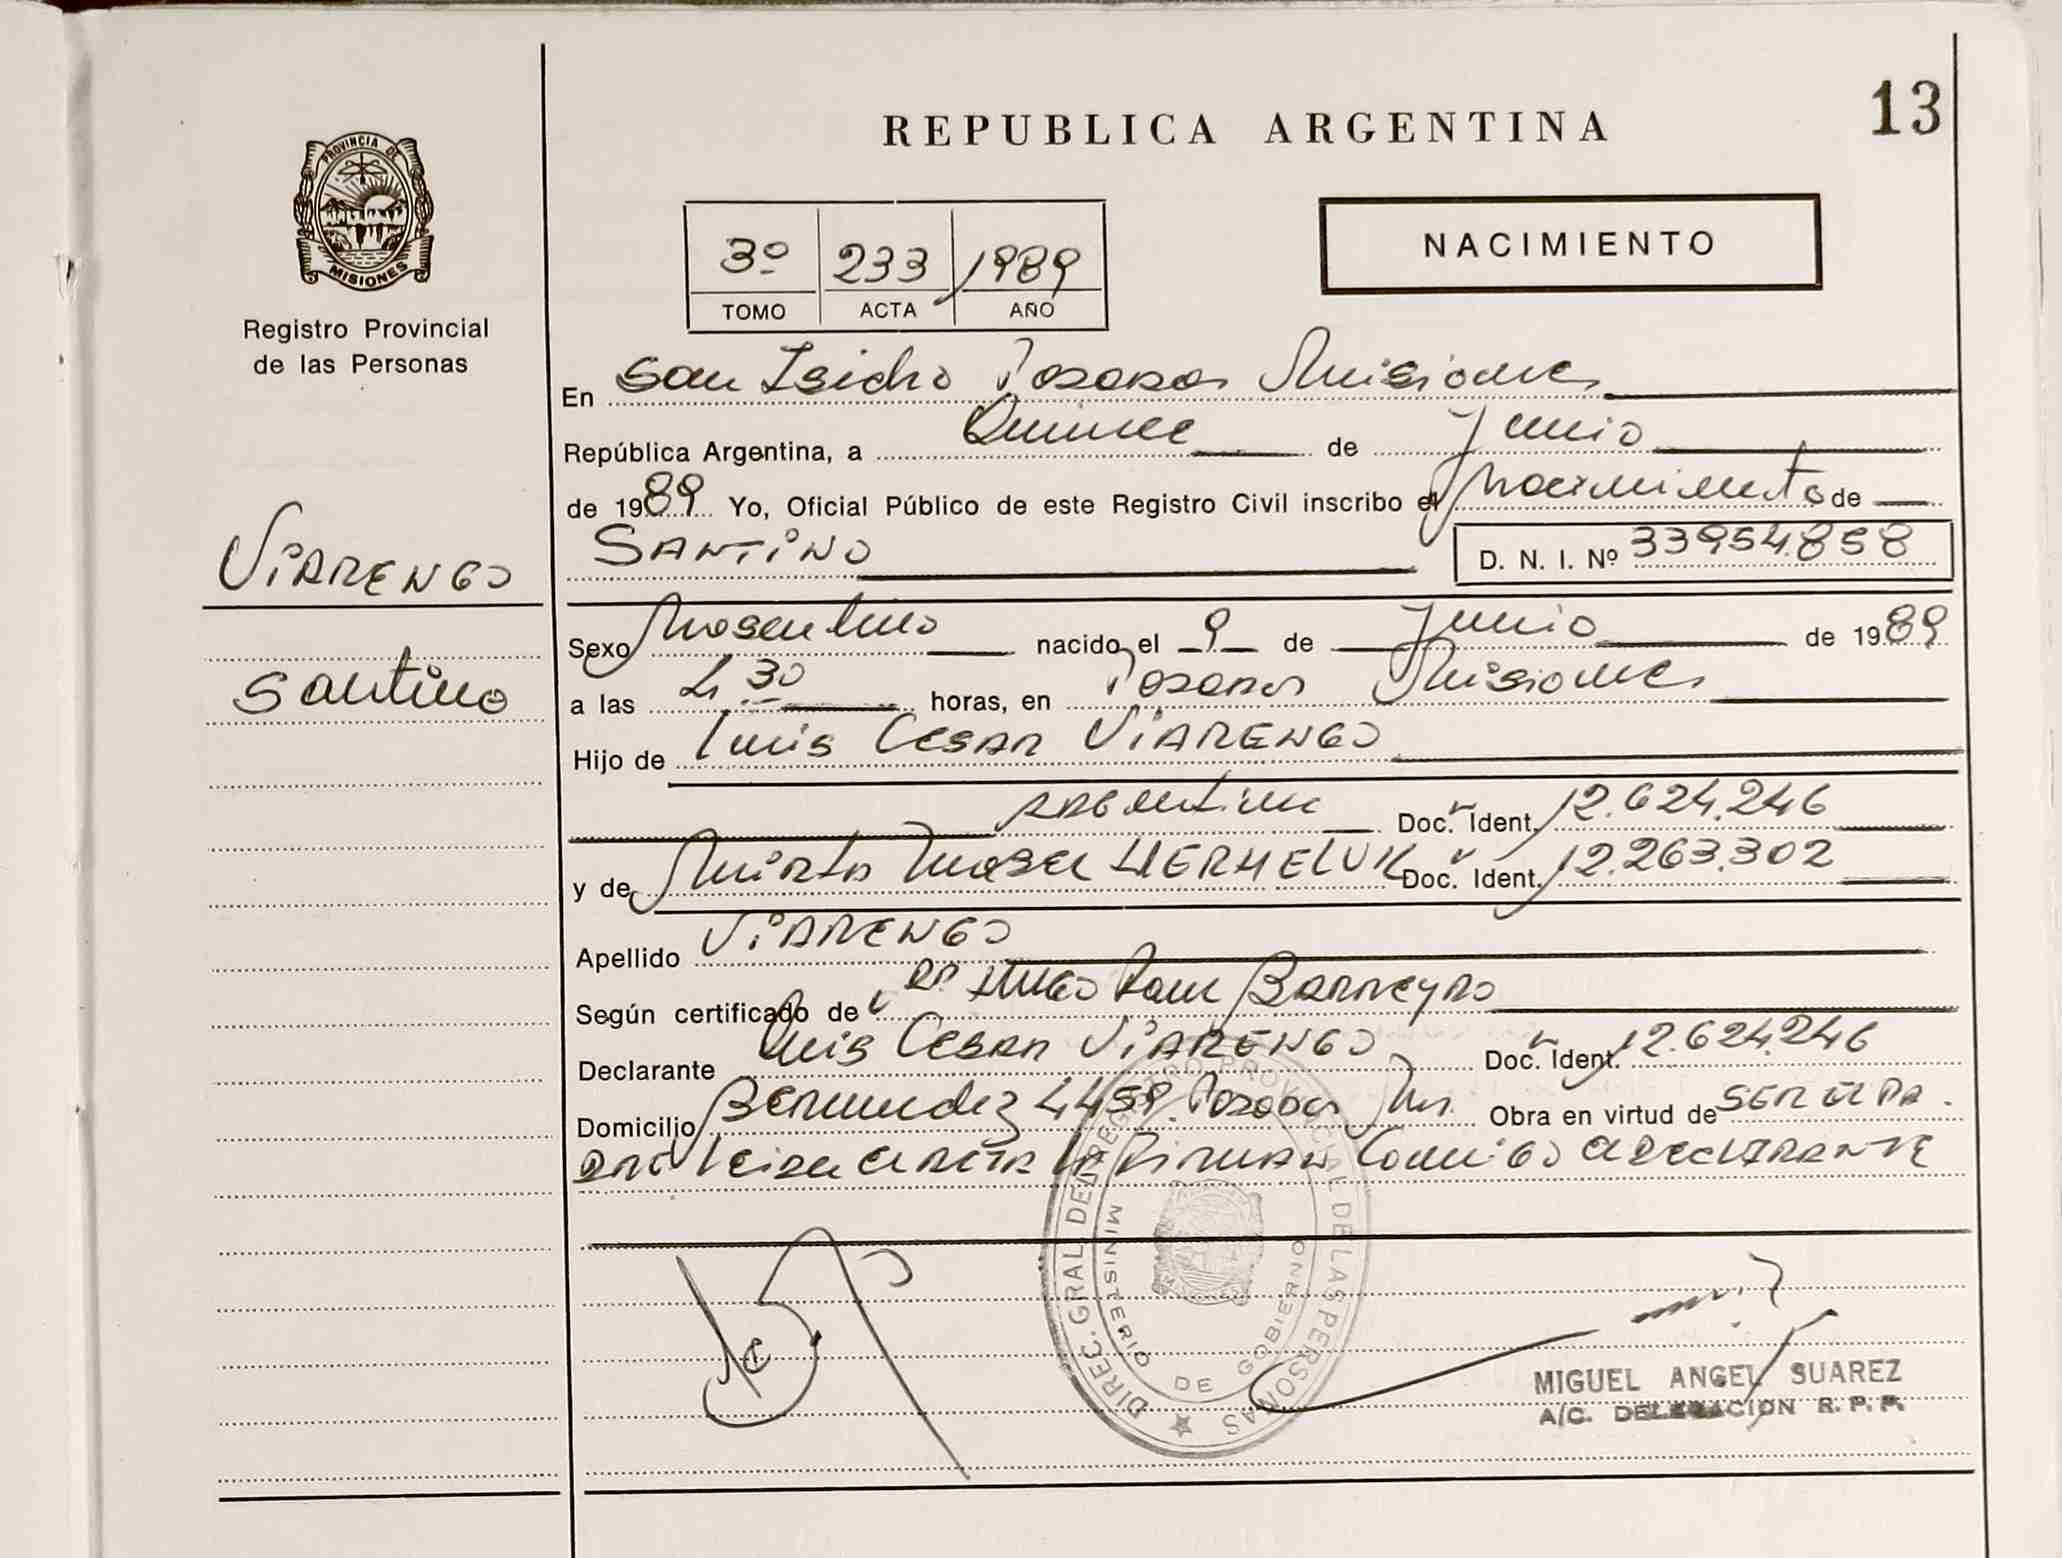 13
REPUBLICA ARGENTINA
PROVINCIA DE
MISIONES
Registro Provincial
de las Personas
NACIMIENTO
3º 233 1989
TOMO ACTA AÑO
En San Isidro Posadas Misiones
República Argentina, a Quince de Junio
de 1989 Yo, Oficial Público de este Registro Civil inscribo el Nacimiento de
VIARENGO
Santino
SANTINO
D. N. I. Nº 33954.858
Sexo Masculino nacido el 9 de Junio de 1989
a las 4.30 horas, en Posadas Misiones
Hijo de Luis Cesar VIARENGO
Argentino Doc. Ident. 12.624.246
y de Mirta Doc. Ident. 12.263.302
Apellido VIARENGO
Según certificado de DR. HUGO Raul Barreyro
Declarante Luis Cesar VIARENGO Doc. Ident. 12.624.246
Domicilio Bermudez 4459 Posadas Mis. Obra en virtud de SER EL PA.
DRE Leida el ACTA LA FIRMAN Conmigo el DECLARANTE
DIREC. GRAL. DEL REGISTRO PROVINCIAL DE LAS PERSONAS
MINISTERIO DE GOBIERNO
MIGUEL ANGEL SUAREZ
A/C. DELEGACION R. P. P.